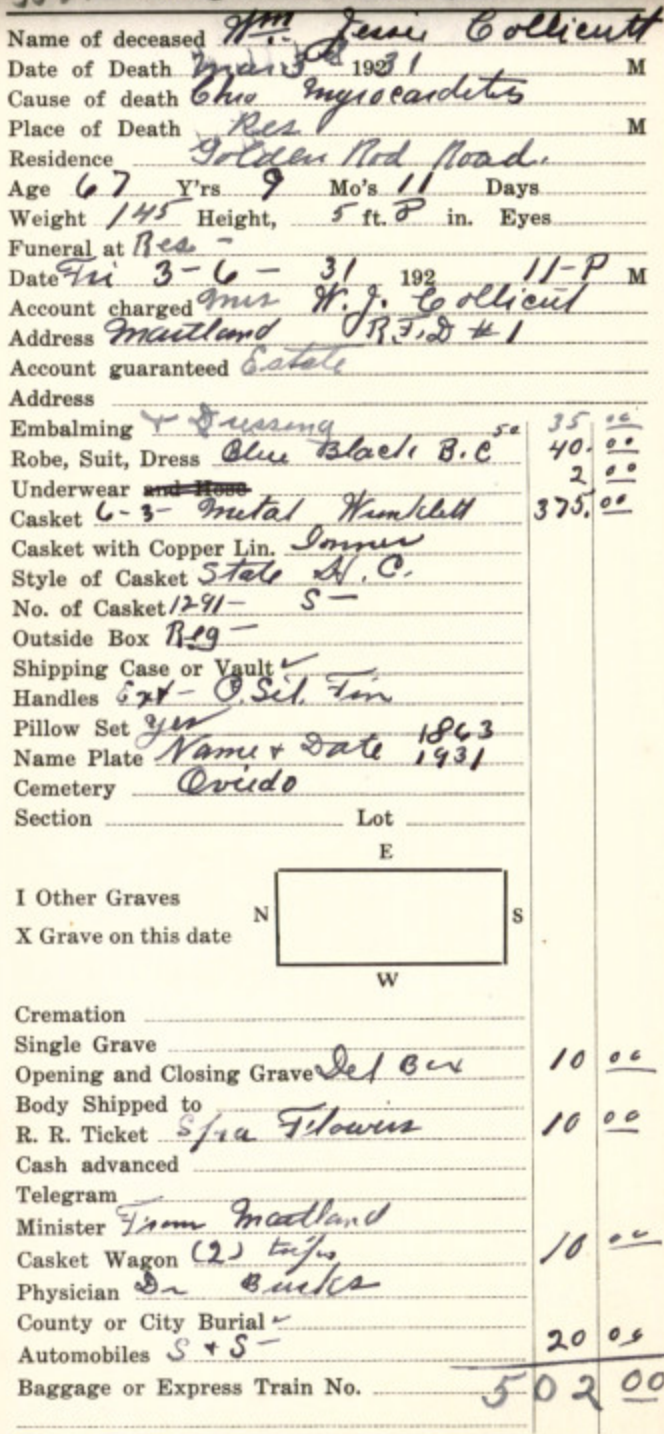 Name of deceased Wm. Jessie Collicutt
Date of Death Mar 3rd 1931 M
Cause of death Chro Myrocarditis
Place of Death Res M
Residence Golden Rod Road.
Age 67 Y'rs 9 Mo's 11 Days
Weight 145 Height, 5 ft. 8 in. Eyes
Funeral at Res -
Date Fri 3-6-31 192 11-P M
Account charged Mrs W. J. Collicut
Address Maitland R.F.D #1
Account guaranteed Estate
Address
Embalming + Dressing 35 00
Robe, Suit, Dress Blue Black B.C 50 40.00
Underwear and Hose 2 00
Casket 6-3- Metal 375.00
Casket with Copper Lin. Inner
Style of Casket State H.C.
No. of Casket 1291- S-
Outside Box Reg-
Shipping Case or Vault ✓
Handles Ext- O. Sil. Fin
Pillow Set yes 1863
Name Plate Name + Date 1931
Cemetery Oviedo
Section Lot
E
I Other Graves
N S
X Grave on this date
W
Cremation
Single Grave
Opening and Closing Grave Del Box 10 00
Body Shipped to
R. R. Ticket Flowers 10 00
Cash advanced
Telegram
Minister From Maitland
Casket Wagon (2) trips 10 00
Physician Dr
County or City Burial ✓
Automobiles S + S- 20 00
Baggage or Express Train No. 502 00